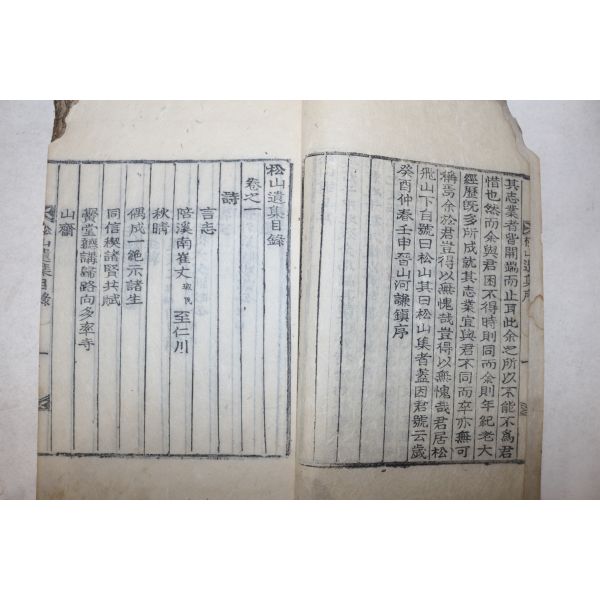 其志業者皆開端而止耳此余之所以不能不爲君
惜也然而余與君困不得時則同而余則年紀老大
經歷旣多所成就其志業宜與君不同而卒亦無可
稱焉余於君豈得以無愧哉豈得以無愧哉君居松
飛山下自號曰松山其曰松山集者蓋因君號云歲
癸酉仲春壬申晉山河謙鎭序
松山遺集序
一
松山遺集目錄
卷之一
詩
言志
陪溪南崔丈琡民至仁川
秋晴
偶成一絶示諸生
同信稧諸賢共賦
山齋
松山遺集目錄
一